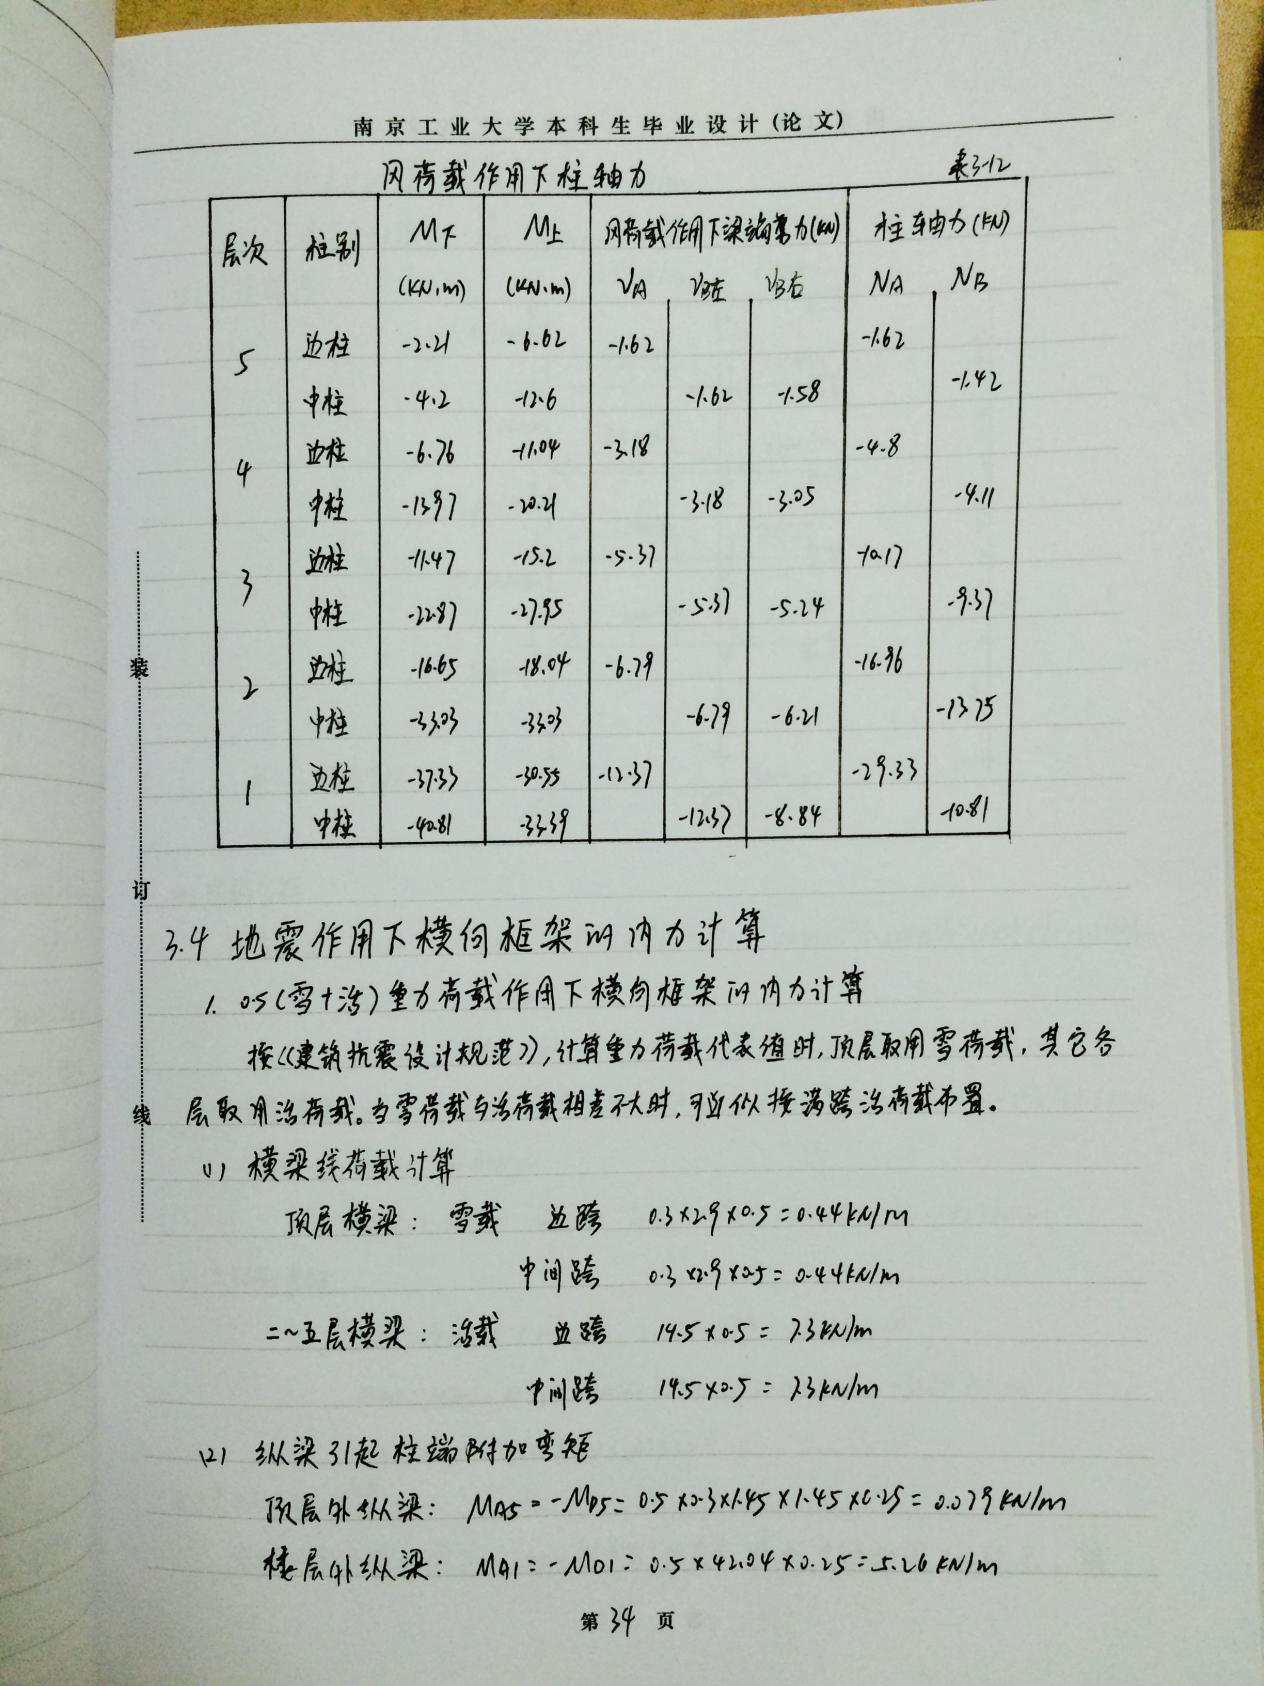 南京工业大学本科生毕业设计(论文)
风荷载作用下柱轴力 表3-12
层次 柱别 M下 M上 风荷载作用下梁端剪力(KN) 柱轴力(KN)
(KN·m) (KN·m) VA VB左 VB右 NA NB
5 边柱 -2.21 -6.62 -1.62 -1.62
中柱 -4.2 -12.6 -1.62 -1.58 -1.42
4 边柱 -6.76 -11.04 -3.18 -4.8
中柱 -13.97 -20.21 -3.18 -3.05 -4.11
3 边柱 -11.47 -15.2 -5.37 -10.17
中柱 -22.87 -27.95 -5.37 -5.24 -9.37
2 边柱 -16.65 -18.04 -6.79 -16.96
中柱 -33.03 -33.03 -6.79 -6.21 -13.75
1 边柱 -37.33 -30.55 -12.37 -29.33
中柱 -40.81 -33.39 -12.37 -8.84 -10.81
装
订
线
3.4 地震作用下横向框架的内力计算
1. 0.5(雪+活)重力荷载作用下横向框架的内力计算
按《建筑抗震设计规范》,计算重力荷载代表值时,顶层取用雪荷载,其它各
层取用活荷载。当雪荷载与活荷载相差不大时,可近似按满跨活荷载布置。
(1) 横梁线荷载计算
顶层横梁: 雪载 边跨 0.3×2.9×0.5=0.44KN/m
中间跨 0.3×2.9×0.5=0.44KN/m
二~五层横梁: 活载 边跨 14.5×0.5=7.3KN/m
中间跨 14.5×0.5=7.3KN/m
(2) 纵梁引起柱端附加弯矩
顶层外纵梁: MA5=-MD5=0.5×0.3×1.45×1.45×0.25=0.079KN/m
楼层外纵梁: MA1=-MD1=0.5×42.04×0.25=5.26KN/m
第34页